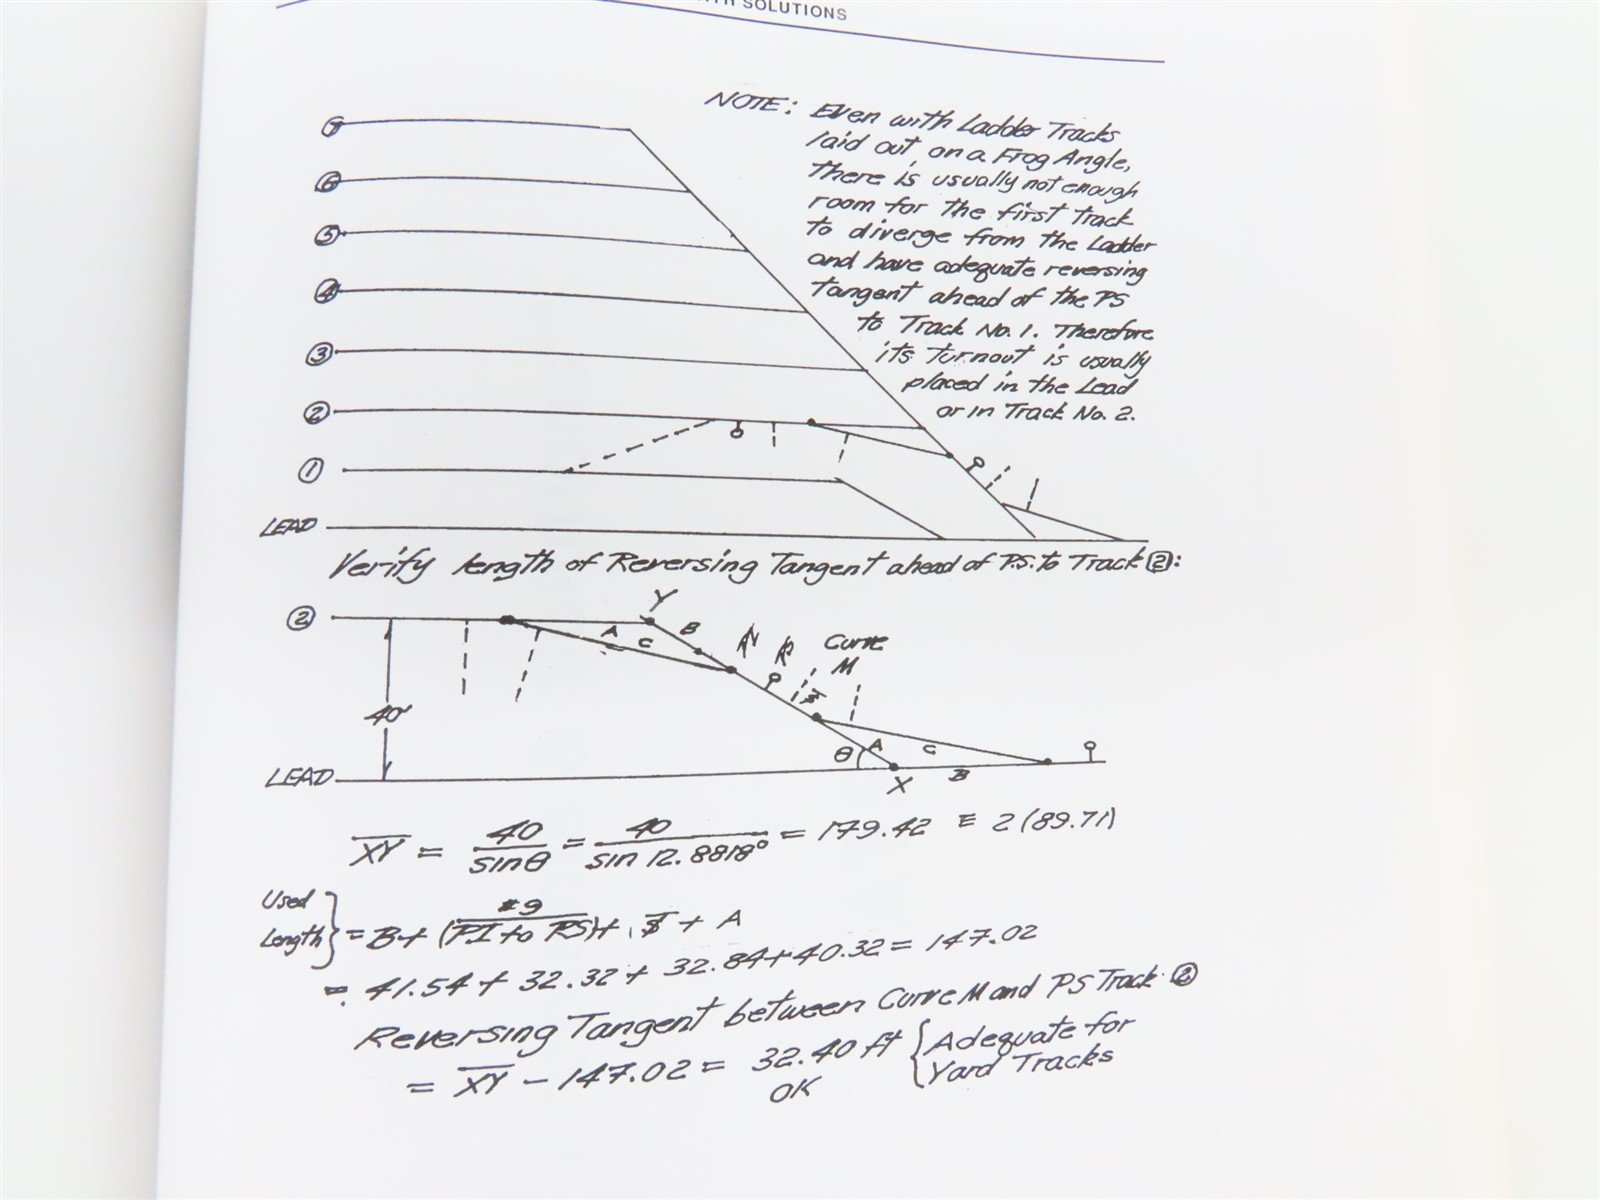 SOLUTIONS
NOTE: Even with Ladder Tracks
laid out on a Frog Angle,
There is usually not enough
room for the first track
to diverge from the Ladder
and have adequate reversing
tangent ahead of the PS
to Track No. 1. Therefore
its turnout is usually
placed in the Lead
or in Track No. 2.
7
6
5
4
3
2
1
LEAD
Verify length of Reversing Tangent ahead of P.S. to Track 2:
2
Y
A
C
B
Curve
M
40'
θ
A
C
B
X
LEAD
XY = 40/sinθ = 40/sin 12.8818° = 179.42 ≡ 2(89.71)
Used
Length } = B + (#9 PI to PS) + T + A
= 41.54 + 32.32 + 32.84 + 40.32 = 147.02
Reversing Tangent between Curve M and PS Track 2
= XY - 147.02 = 32.40 ft { Adequate for
OK Yard Tracks